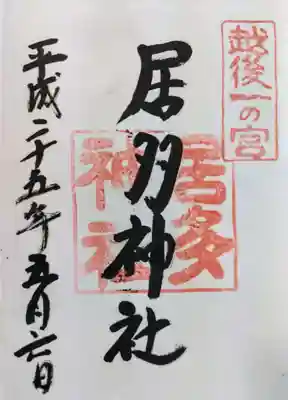 越後一の宮
居多神社
居多神社
平成二十五年五月六日